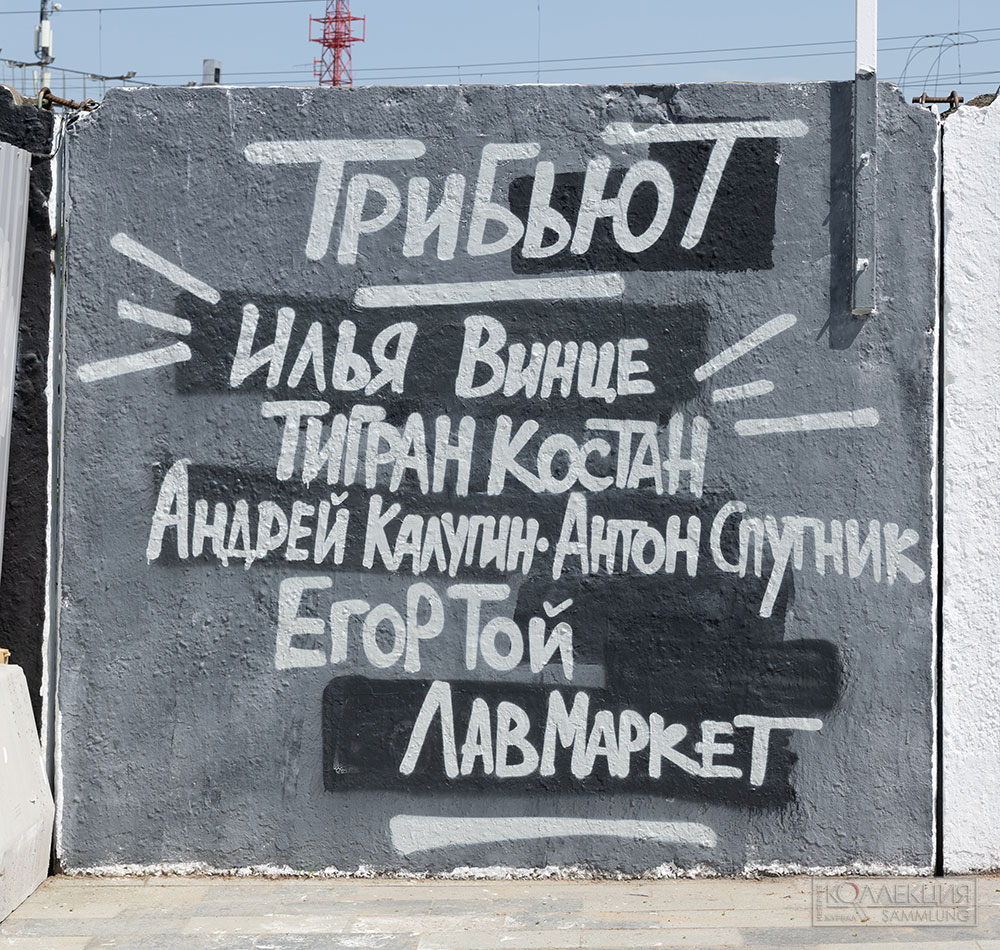 ТРИБЬЮТ
ИЛЬЯ ВИНЦЕ
ТИГРАН КОСТАН
АНДРЕЙ КАЛУГИН·АНТОН СПУТНИК
ЕГОР ТОЙ
ЛАВ МАРКЕТ
КОЛЛЕКЦИЯ
SAMMLUNG